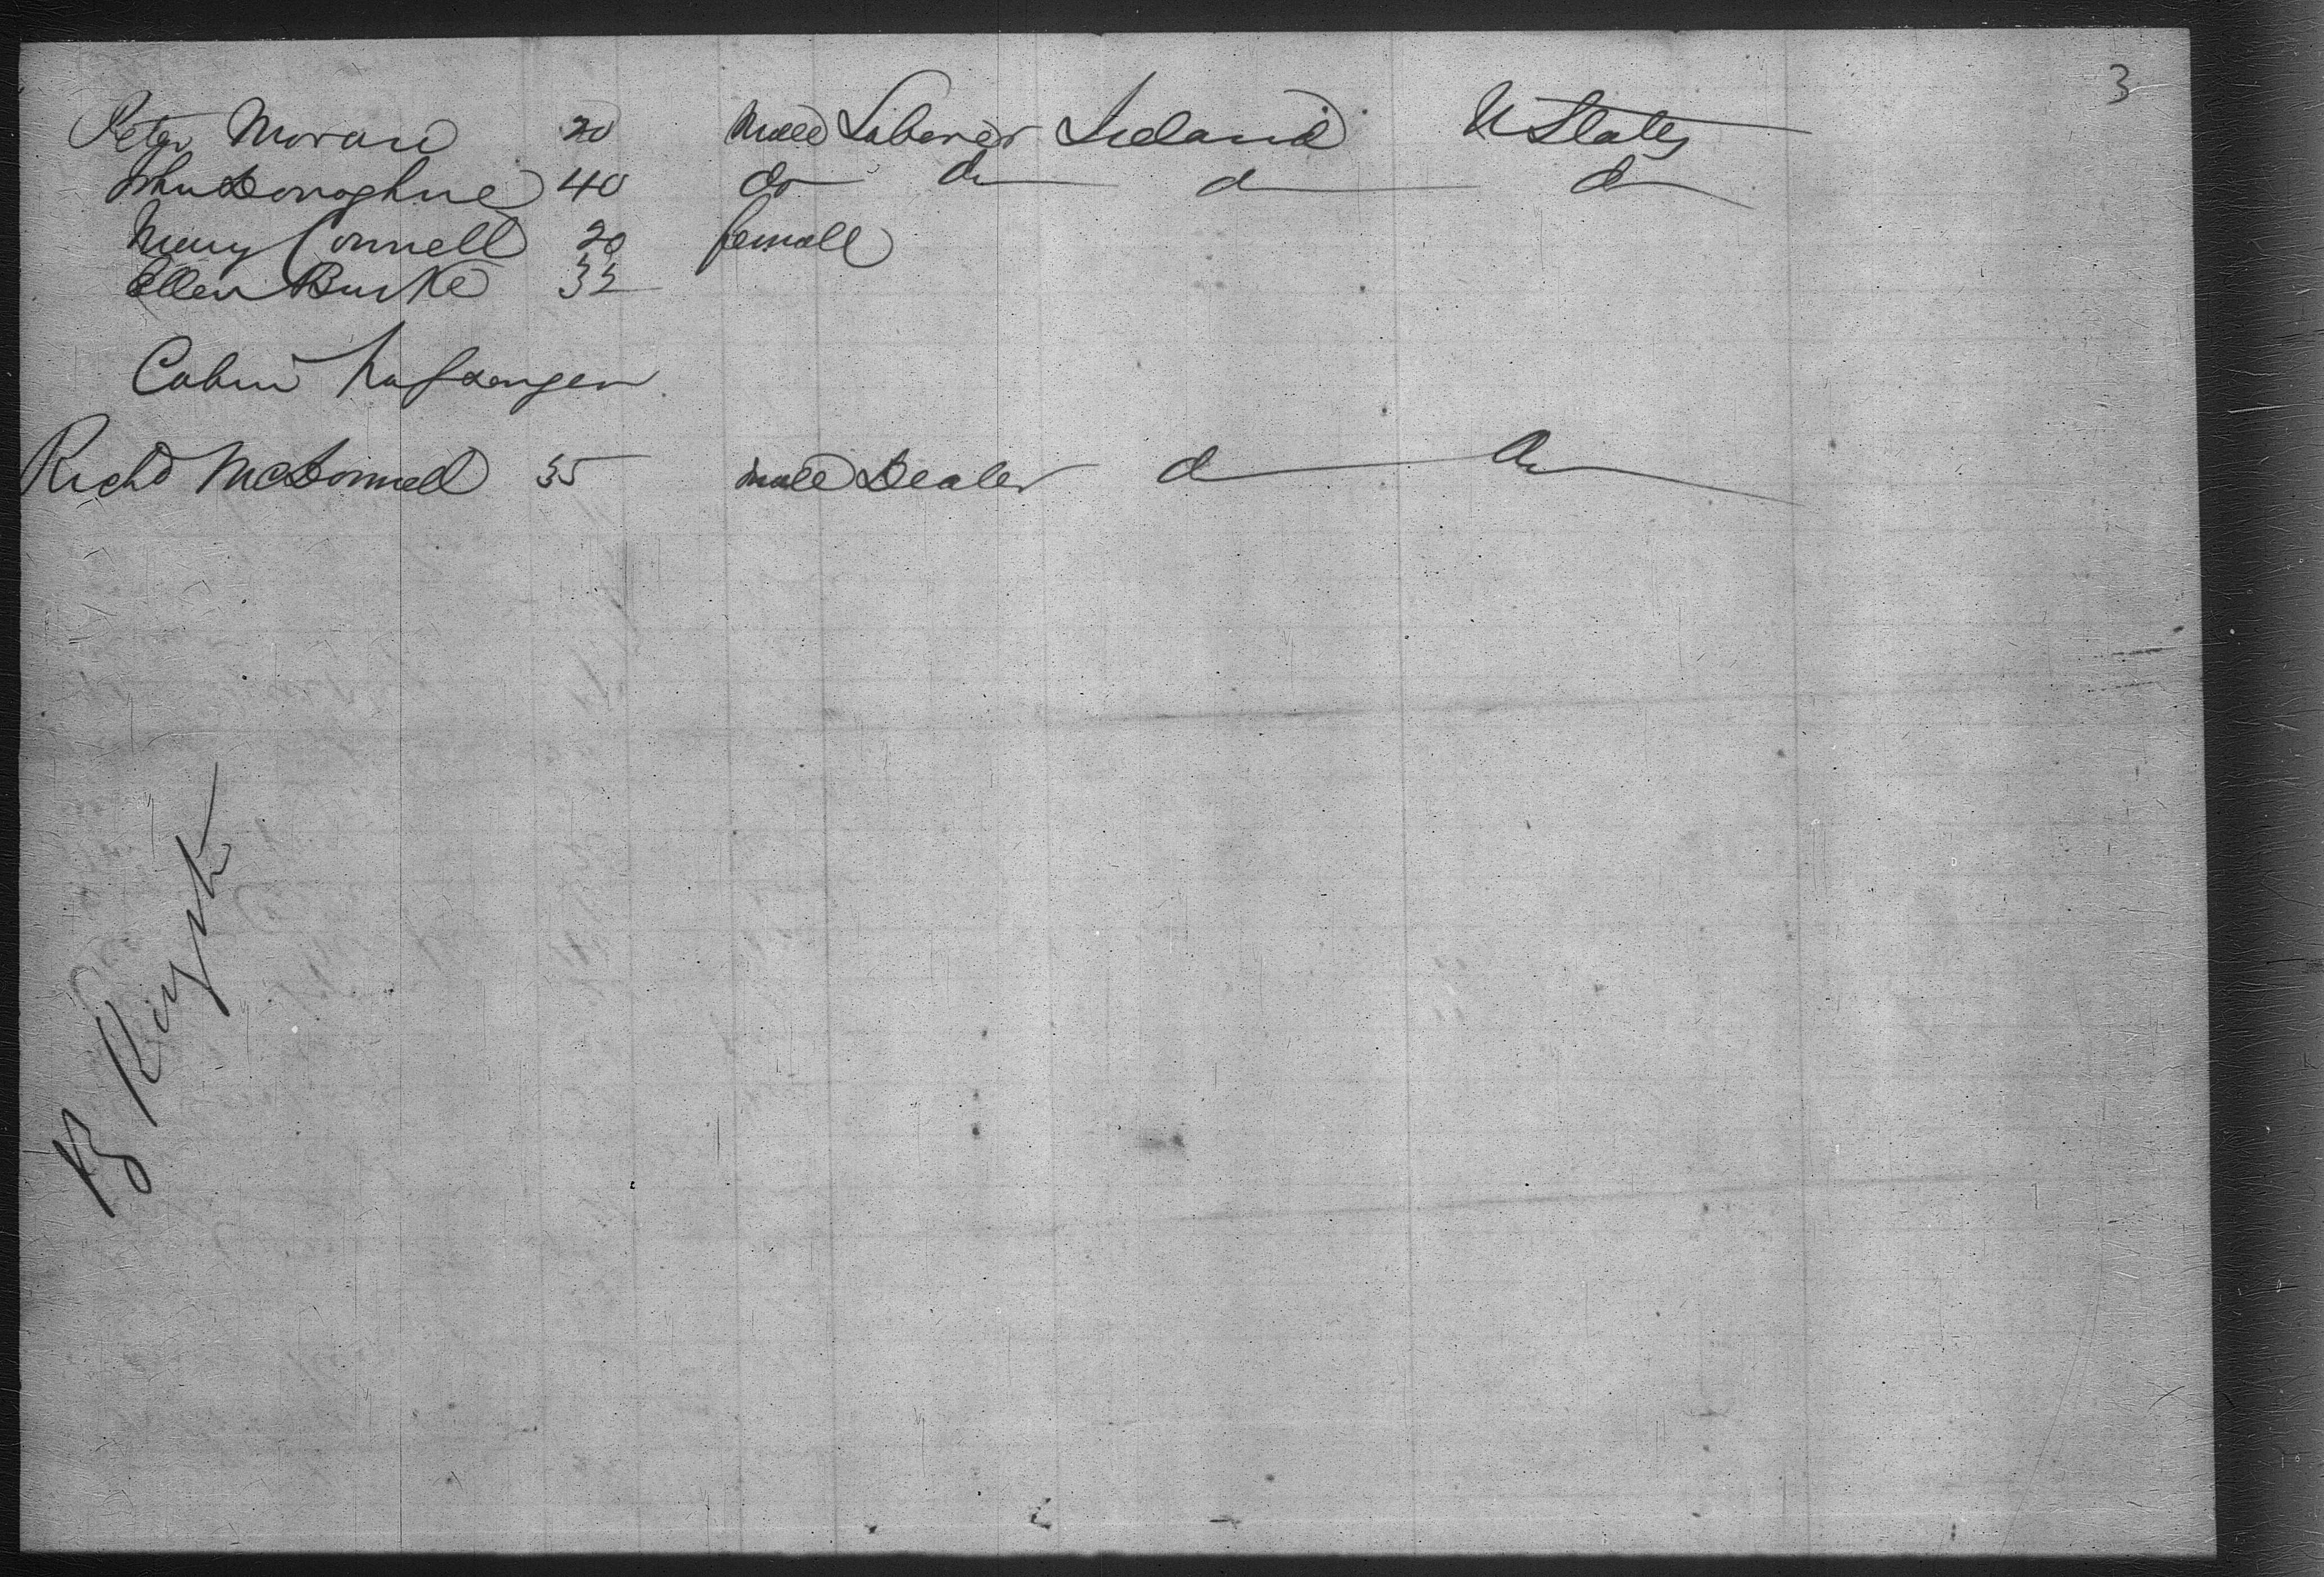 3
Peter Moran 20 Male Laborer Ireland U States
John Donoghue 40 do do do do
Mary Connell 20 female
Ellen Burke 32
Cabin Passenger
Richd McDonnell 35 male Dealer do do
B